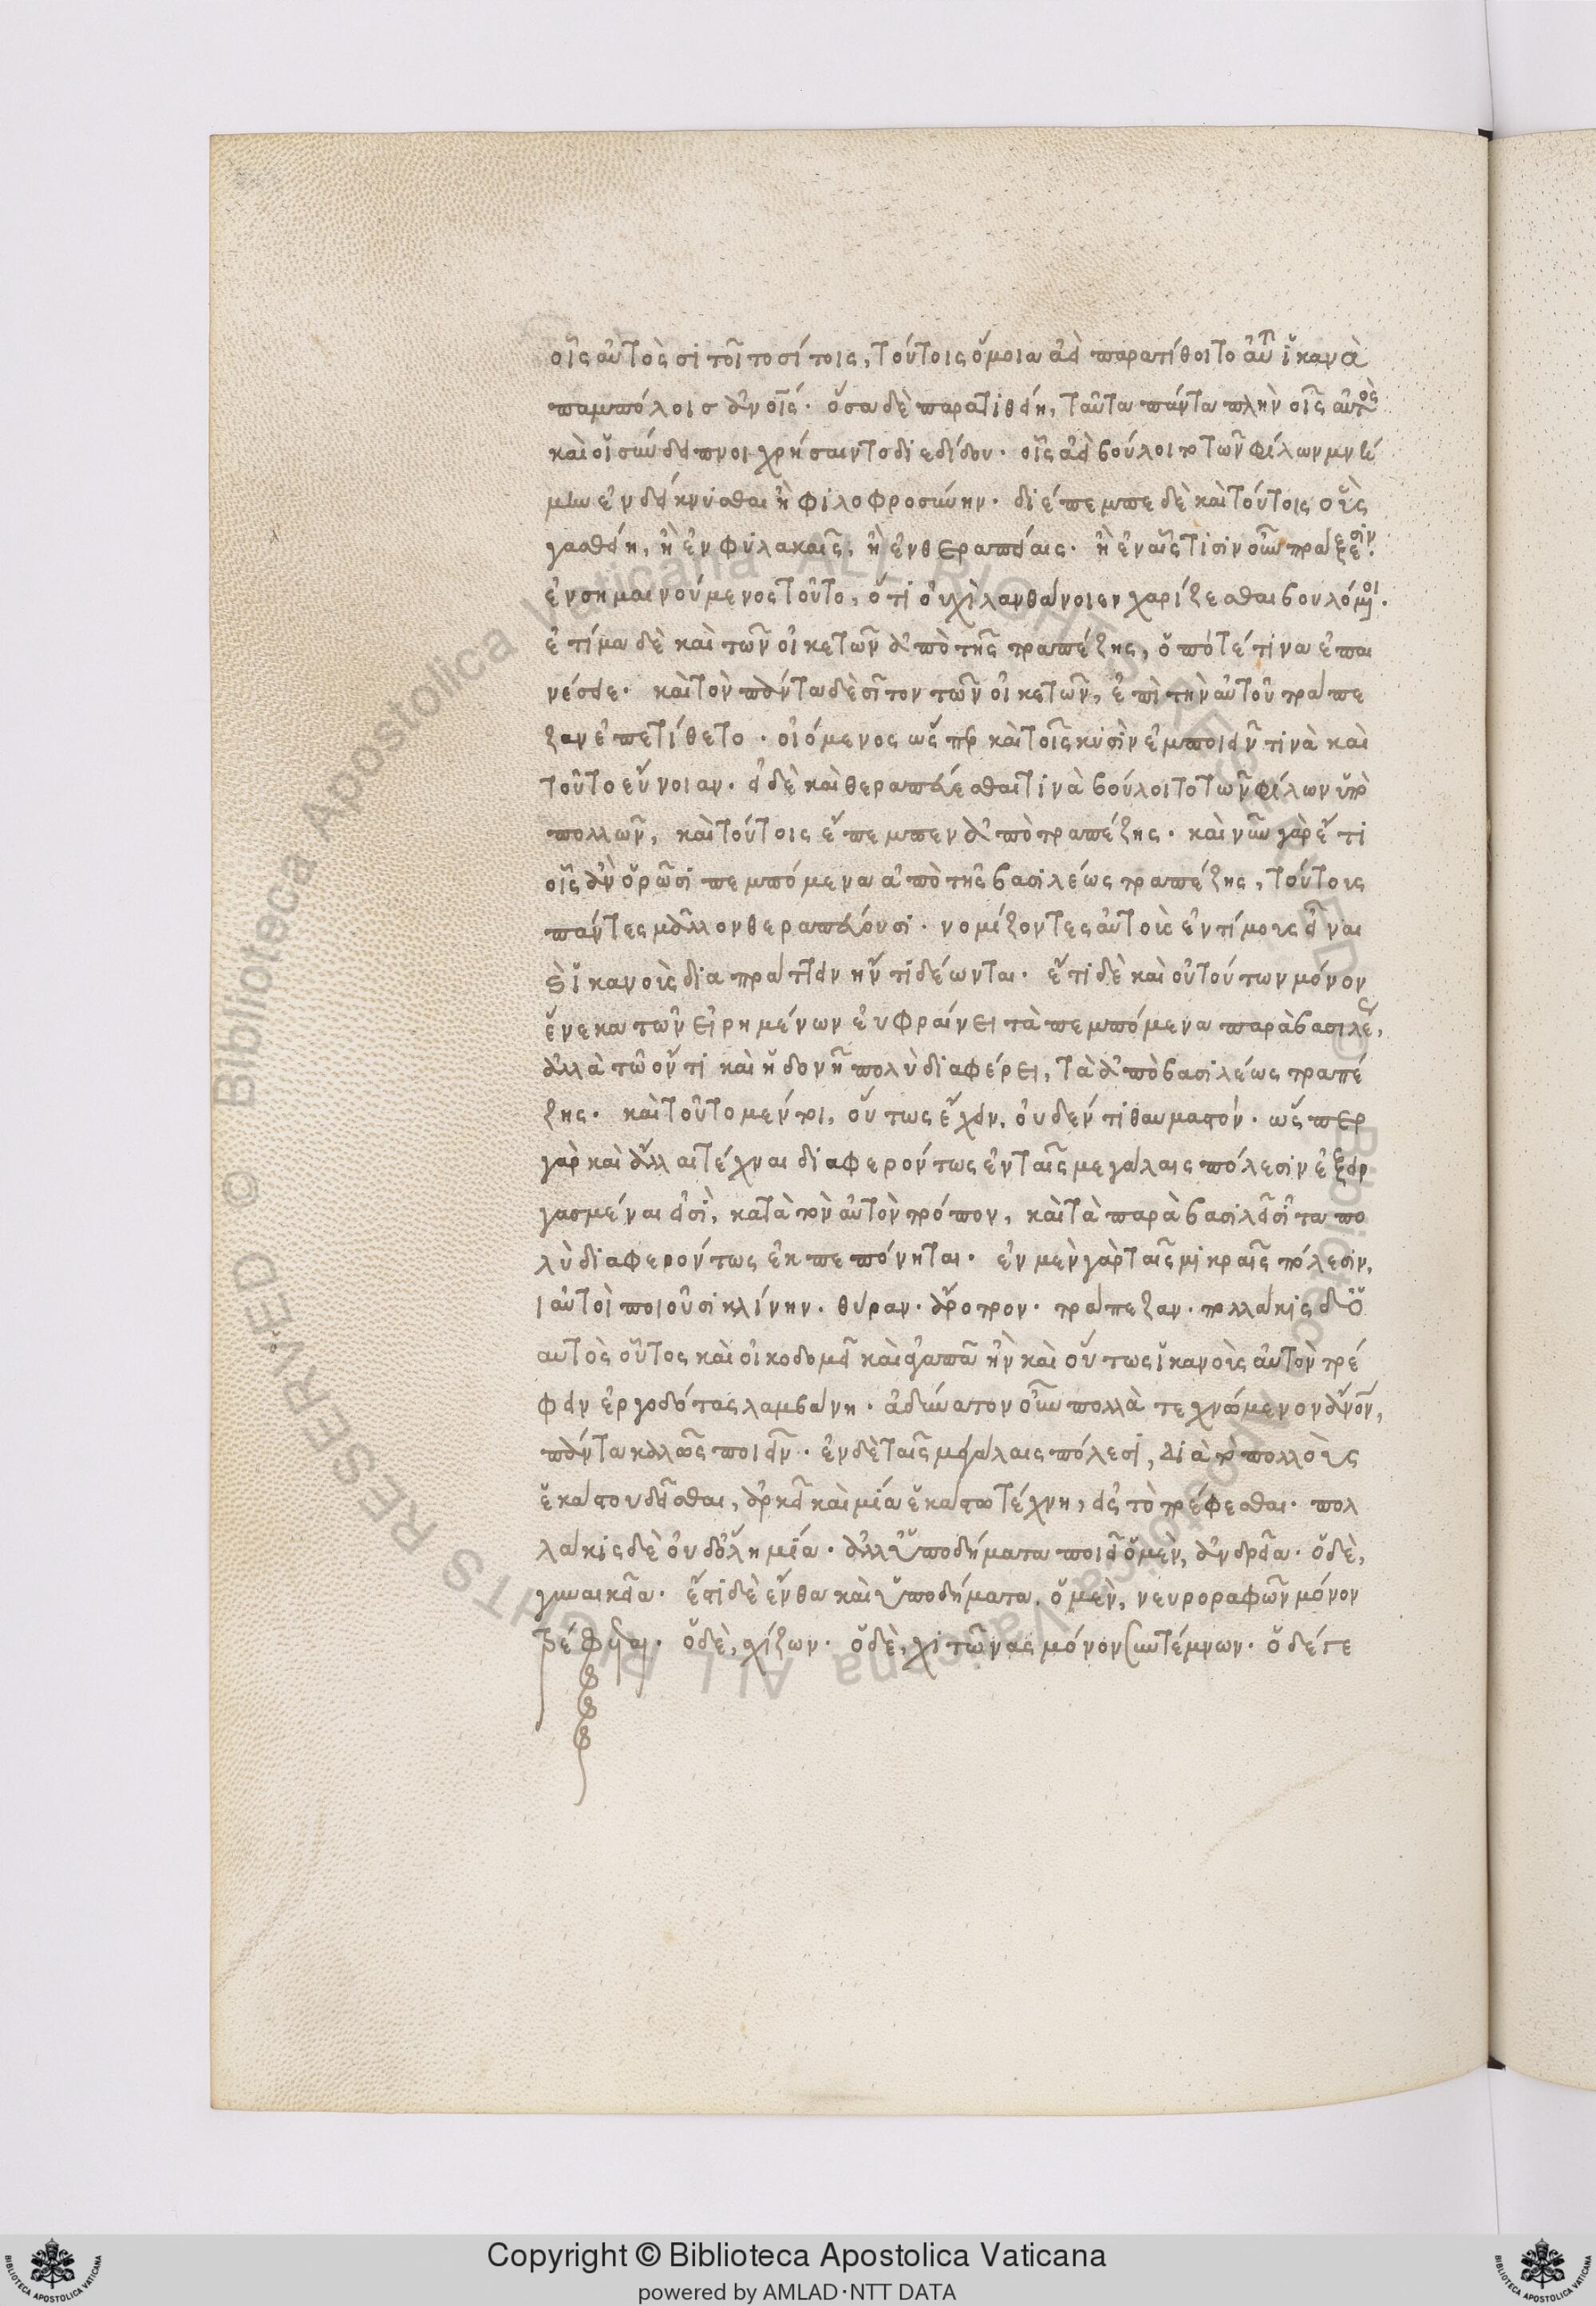 οἷς αὐτὸς σιτοῖτο σίτοις, τούτοις ὅμοια ἀεὶ παρατίθοιτο αὐτῷ ἱκανὰ
παμπόλοισ ἀνοις. ὅσα δὲ παρατιθείη, ταῦτα πάντα πλὴν οἷς αὐτὸς
καὶ οἱ σύνδειπνοι χρήσαιντο διεδίδου. οἷς ἀεὶ βούλοιτο τῶν φίλων
ἐνδείκνυσθαι ἢ φιλοφροσύνην. διέπεμπε δὲ καὶ τούτοις οὓς
γασθείη, ἢ ἐν φυλακαῖς, ἢ ἐν θεραπείαις. ἢ ἐν αἷς τισὶν οὖν πράξεσιν.
ἐνσημαινούμενος τοῦτο, ὅτι οὐχὶ λανθάνοιεν χαρίζεσθαι βουλόμενοι.
ἐτίμα δὲ καὶ τῶν οἰκετῶν ἀπὸ τῆς τραπέζης, ὁπότε τινα ἐπαι
νέσειε. καὶ τὸν πάντα δὲ σῖτον τῶν οἰκετῶν, ἐπὶ τὴν αὐτοῦ τράπε
ζαν ἐπετίθετο. οἰόμενος ὥσπερ καὶ τοῖς κυσὶν ἐμποιεῖν τινὰ καὶ
τοῦτο εὔνοιαν. εἰ δὲ καὶ θεραπεύεσθαι τινὰ βούλοιτο τῶν φίλων ὑπὸ
πολλῶν, καὶ τούτοις ἔπεμπεν ἀπὸ τραπέζης. καὶ νῦν γὰρ ἔτι
οἷς ἂν ὁρῶσι πεμπόμενα ἀπὸ τῆς βασιλέως τραπέζης, τούτους
πάντες μᾶλλον θεραπεύουσι. νομίζοντες αὐτοὺς ἐντίμους εἶναι
καὶ ἱκανοὺς διαπράττειν ἤν τι δέωνται. ἔτι δὲ καὶ οὐ τούτων μόνον
ἕνεκα τῶν εἰρημένων εὐφραίνει τὰ πεμπόμενα παρὰ βασιλέως,
ἀλλὰ τῶ ὄντι καὶ ἡδονῇ πολὺ διαφέρει, τὰ ἀπὸ βασιλέως τραπέ
ζης. καὶ τοῦτο μέντοι, οὕτως ἔχειν, οὐδέν τι θαυμαστόν. ὥσπερ
γὰρ καὶ ἄλλαι τέχναι διαφερόντως ἐν ταῖς μεγάλαις πόλεσιν ἐξειρ
γασμέναι εἰσὶ, κατὰ τὸν αὐτὸν τρόπον, καὶ τὰ παρὰ βασιλεῖ σῖτα πο
λὺ διαφερόντως ἐκπεπόνηται. ἐν μὲν γὰρ ταῖς μικραῖς πόλεσιν,
ι αὐτοὶ ποιοῦσι κλίνην. θύραν. ἄροτρον. τράπεζαν. πολλάκις δ' ὁ
αυτὸς οὗτος καὶ οἰκοδομεῖ καὶ ἀγαπᾶ ἢν καὶ οὕτως ἱκανοὺς αὐτὸν τρέ
φειν ἐργοδότας λαμβάνη. ἀδύνατον οὖν πολλὰ τεχνώμενον ἄνον,
πάντα καλῶς ποιεῖν. ἐν δὲ ταῖς μεγάλαις πόλεσι, διὰ τὸ πολλοὺς
ἑκάστου δεῖσθαι, ἀρκεῖ καὶ μία ἑκάστω τέχνη, εἰς τὸ τρέφεσθαι. πολ
λάκις δὲ οὐδ' ὅλη μία. ἀλλ' ὑποδήματα ποιεῖ ὁ μὲν, ἀνδρεῖα. ὁ δὲ,
γυναικεῖα. ἔστι δὲ ἔνθα καὶ ὑποδήματα, ὁ μὲν, νευροραφῶν μόνον
τρέφεται. ὁ δὲ, σχίζων. ὁ δὲ, χιτῶνας μόνον συντέμνων. ὁ δέ γε
Copyright © Biblioteca Apostolica Vaticana
powered by AMLAD·NTT DATA